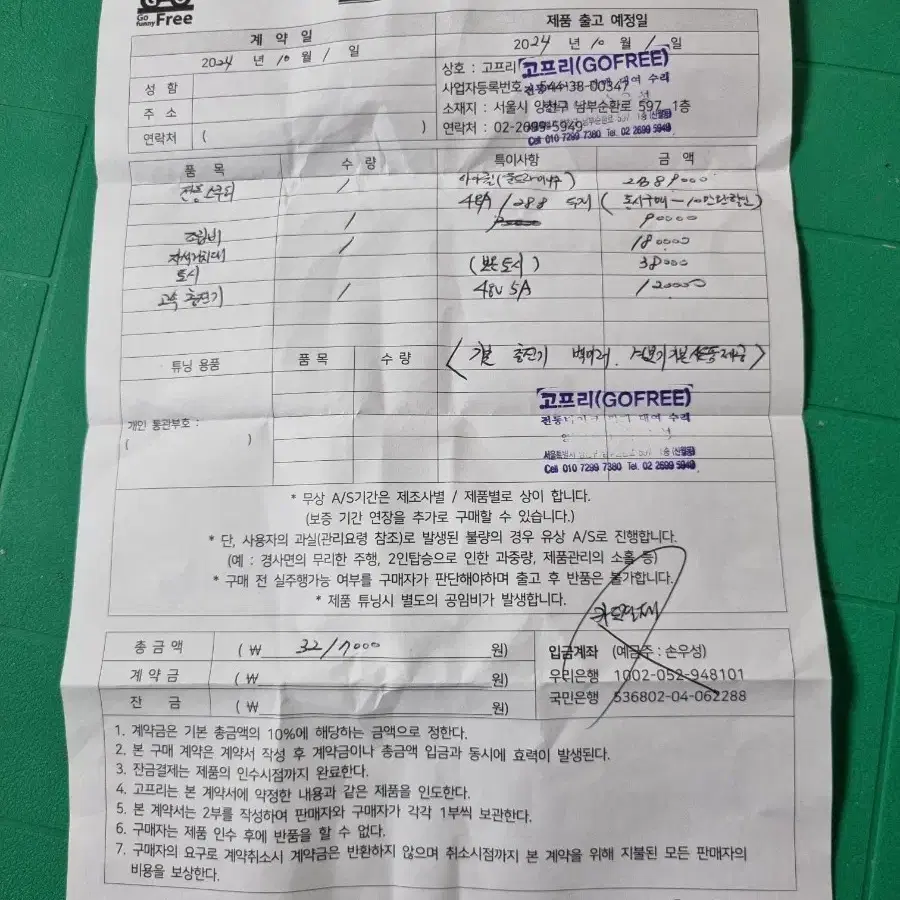 Go funny Free
계 약 일
제품 출고 예정일
2024 년 10 월 1 일
2024 년 10 월 1 일
성 함
주 소
연락처 ( )
상호 : 고프리
고프리(GOFREE)
사업자등록번호 : 544-38-00347
소재지 : 서울시 양천구 남부순환로 597, 1층
연락처 : 02-2699-5949
Cell 010 7299 7380 Tel. 02 2699 5949
품 목 수 량 특이사항 금 액
전동스쿠터 1
1
조립비 90000
1 180000
토시 (보온토시) 38000
고속 충전기 1 48V 5A 120000
튜닝 용품 품 목 수 량
개인 통관부호 :
( )
고프리(GOFREE)
Cell 010 7299 7380 Tel. 02 2699 5949
* 무상 A/S기간은 제조사별 / 제품별로 상이 합니다.
(보증 기간 연장을 추가로 구매할 수 있습니다.)
* 단, 사용자의 과실(관리요령 참조)로 발생된 불량의 경우 유상 A/S로 진행합니다.
(예 : 경사면의 무리한 주행, 2인탑승으로 인한 과중량, 제품관리의 소홀 등)
* 구매 전 실주행가능 여부를 구매자가 판단해야하며 출고 후 반품은 불가합니다.
* 제품 튜닝시 별도의 공임비가 발생합니다.
총 금 액 ( ₩ 3217000 원)
계 약 금 ( ₩ 원)
잔 금 ( ₩ 원)
입금계좌 (예금주 : 손우성)
우리은행 1002-052-948101
국민은행 536802-04-062288
1. 계약금은 기본 총금액의 10%에 해당하는 금액으로 정한다.
2. 본 구매 계약은 계약서 작성 후 계약금이나 총금액 입금과 동시에 효력이 발생된다.
3. 잔금결제는 제품의 인수시점까지 완료한다.
4. 고프리는 본 계약서에 약정한 내용과 같은 제품을 인도한다.
5. 본 계약서는 2부를 작성하여 판매자와 구매자가 각각 1부씩 보관한다.
6. 구매자는 제품 인수 후에 반품을 할 수 없다.
7. 구매자의 요구로 계약취소시 계약금은 반환하지 않으며 취소시점까지 본 계약을 위해 지불된 모든 판매자의
비용을 보상한다.